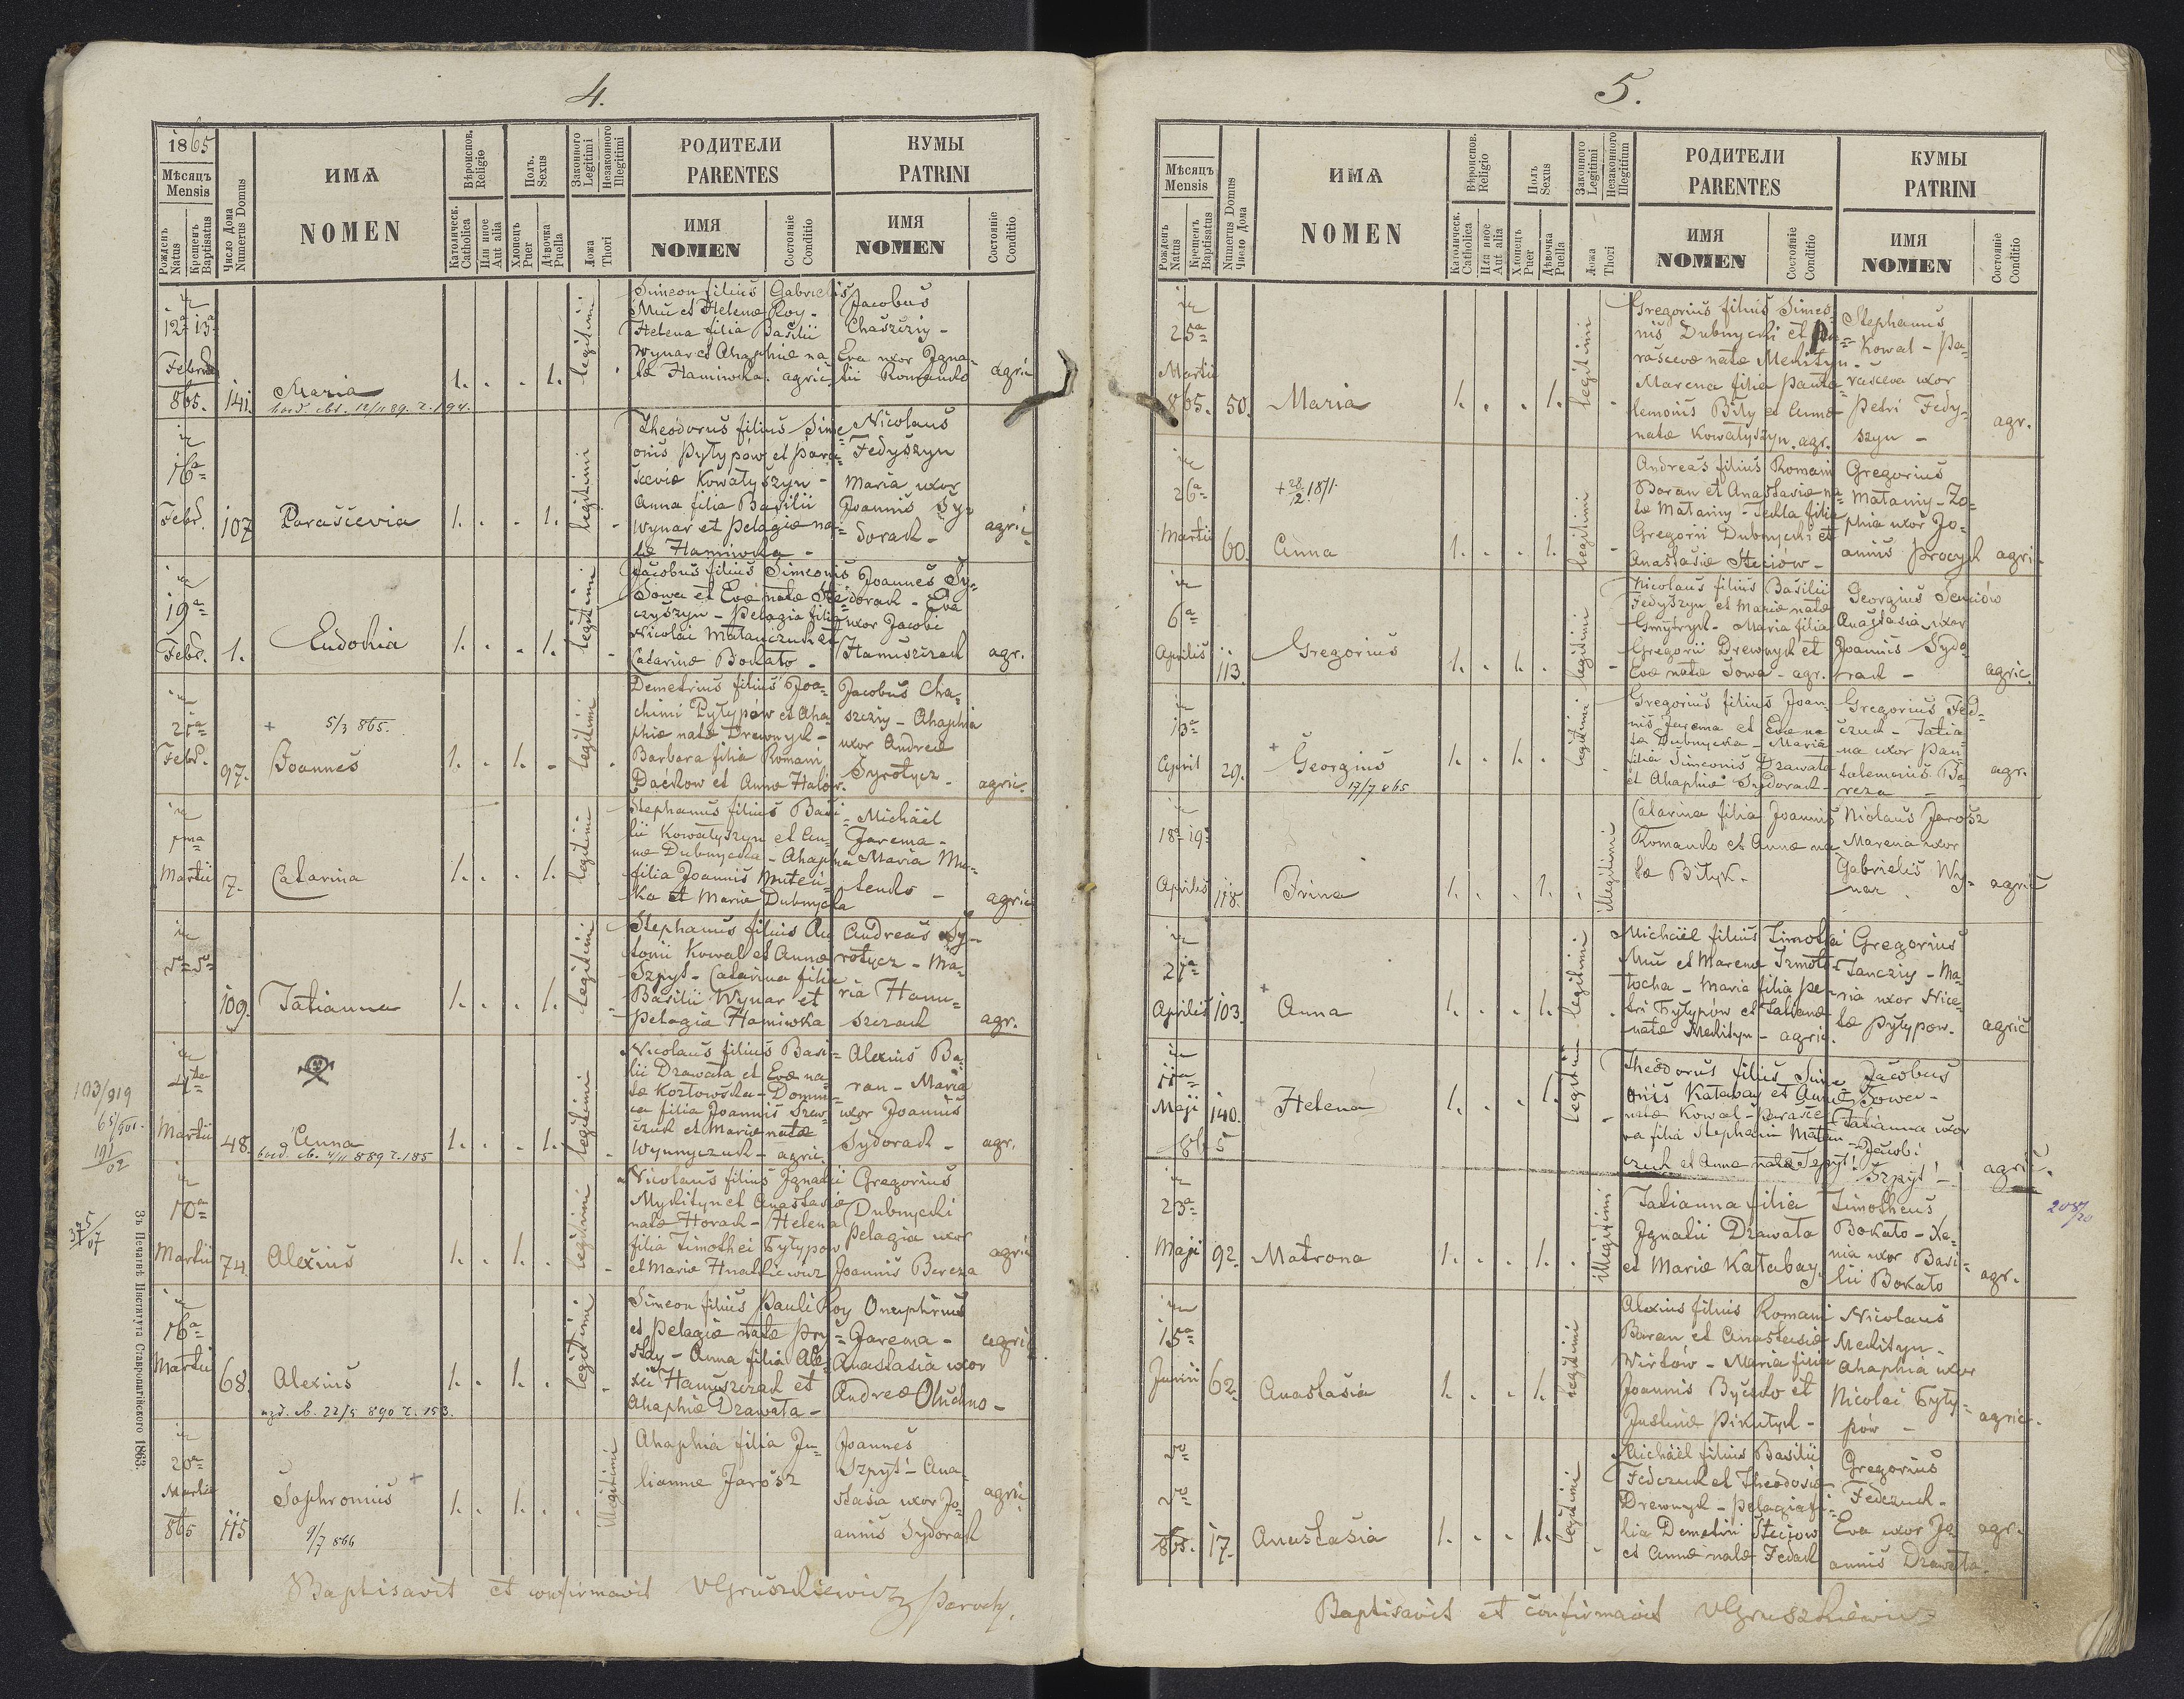 4.
1865
Мѣсяцъ
Mensis
Рожденъ
Natus
Крещенъ
Baptisatus
Число Дома
Numerus Domus
ИМѦ
NOMEN
Вѣроиспов.
Religio
Католическ.
Catholica
Или иное
Aut alia
Полъ.
Sexus
Хлопецъ
Puer
Дѣвочка
Puella
Законного
Legitimi
Незаконного
Illegitimi
Ложа
Thori
РОДИТЕЛИ
PARENTES
ИМЯ
NOMEN
Состояніе
Conditio
КУМЫ
PATRINI
ИМЯ
NOMEN
Состояніе
Conditio
12ª 13ª
865. 141. Maria 1. . . 1. legitimi
Simeon filius Gabrielis
Helena filia Basilii
Wynar et Ahaphiæ na-
tæ Hamiwka. agric.
Jacobus
Chaszczij -
Eva uxor Igna-
tii Romanko
agric
16ª
Febr. 107 Parascevia 1. . . 1. legitimi
Theodorus filius Sime-
onis Pyłypów et Para-
sceviæ Kowałyszyn -
Anna filia Basilii
Wynar et Pelagiæ na-
tæ Hamiwka -
Nicolaus
Fedyszyn
Maria uxor
Joannis Sy-
dorak -
agric
19ª
Febr. 1. Eudokia 1. . . 1. legitimi
Jacobus filius Simeonis
Sowa et Evæ natæ Ste-
czyszyn - Pelagia filia
Nicolai Matanczuk et
Catarinæ Bokało -
Joannes Sy-
dorak - Eva
uxor Jacobi
Hamiszczak
agr.
21ª
Febr. 97. + 5/3 865.
Joannes 1. . 1. . legitimi
Demetrius filius Joa-
chimi Pyłypów et Aha-
phiæ natæ Drewnyk -
Barbara filia Romani
Daćków et Annæ Halów.
Jacobus Cha-
szczij - Ahaphia
uxor Andreæ
Syrotycz -
agric.
1ma
Martii 7. Catarina 1. . . 1. legitimi
Stephanus filius Basi-
lii Kowałyszyn et An-
næ Dubnycka - Ahaphia
filia Joannis Muteń-
ka et Mariæ Dubnycka
Michäel
Jarema -
Maria Mu-
tenko -
agric
109. Tatianna 1. . . 1. legitimi
Stephanus filius An-
tonii Kowal et Annæ
Szpyt - Catarina filia
Basilii Wynar et
Pelagiæ Hamiwka
Andreas Sy-
rotycz - Ma-
ria Hamu-
szczak
agr.
103/919
4ta
Martii 48. Anna 1. . . 1. legitimi
Nicolaus filius Basi-
lii Drawała et Evæ na-
tæ Kozłowska - Domni-
ca filia Joannis
czuk et Mariæ natæ
Wynnyczuk - agric.
Alexius Ba-
ran - Maria
uxor Joannis
Sydorak -
agr.
10ª
Martii 74. Alexius 1. . 1. . legitimi
Nicolaus filius Ignatii
Mykityn et Anastasiæ
natæ Horak - Helena
filia Timothei Pyłypów
et Mariæ Hnatkiewicz
Gregorius
Dubnycki
Pelagia uxor
Joannis Bereza
agric
16ª
Martii 68. Alexius 1. . 1. . legitimi
22/5 890 153.
Simeon filius Pauli Roy
et Pelagiæ natæ Pry-
stay - Anna filia Ale-
xii Hamuszczak et
Ahaphiæ Drawała -
Onuphrius
Jarema -
Anastasia uxor
Andreæ Oluchno -
agric
20ª
Martii
865 115 Sophronius + 1. . 1. . illegitimi
9/7 866
Ahaphia filia Ju-
liannæ Jarosz
Joannes
Szpyt - Ana-
stasia uxor Jo-
annis Sydorak
agric
Baptisavit et confirmavit Gruszkiewicz Paroch.
Зъ Печатнѣ Института Ставропигійского 1863.
5.
Мѣсяцъ
Mensis
Рожденъ
Natus
Крещенъ
Baptisatus
Numerus Domus
Число Дома
ИМѦ
NOMEN
Вѣроиспов.
Religio
Католическ.
Catholica
Или иное
Aut alia
Полъ
Sexus
Хлопецъ
Puer
Дѣвочка
Puella
Законного
Legitimi
Незаконного
Illegitimi
Ложа
Thori
РОДИТЕЛИ
PARENTES
ИМЯ
NOMEN
Состояніе
Conditio
КУМЫ
PATRINI
ИМЯ
NOMEN
Состояніе
Conditio
25ª
Martii
865. 50. Maria 1. . . 1. legitimi
Gregorius filius Simeo-
nis Dubnycki et Pa-
rascevæ natæ Mekityn -
Marena filia Panta-
lemonis Biły et Annæ
natæ Kowałyszyn. agr.
Stephanus
Kowal - Pa-
rasceva uxor
Petri Fedy-
szyn -
agr.
26ª
Martii 60. + 28/12 1871.
Anna 1. . . 1. legitimi
Andreas filius Romani
Baran et Anastasiæ na-
tæ Matanij - Tekla filia
Gregorii Dubnycki et
Anastasiæ Steciów -
Gregorius
Matanij - Zo-
phia uxor Jo-
annis Procyk
agri.
6ª
Aprilis 113. Gregorius 1. . 1. . legitimi
Nicolaus filius Basilii
Fedyszyn et Mariæ natæ
Gmytryk - Maria filia
Gregorii Drewnyk et
Evæ natæ Sowa - agr.
Georgius Senciów
Anastasia uxor
Joannis Sydo-
rak -
agric.
13ª
April 29. + Georgius 1. . 1. . legitimi
17/7 865
Gregorius filius Joan-
nis Jarema et Evæ na-
tæ Dubnycka - Maria
filia Simeonis Drawała
et Ahaphiæ Sydorak -
Gregorius Fed-
czuk - Tatia-
na uxor Pan-
talemonis Be-
reza -
agr.
18ª 19ª
Aprilis 118. Irina 1. . . 1. . illegitimi
Catarina filia Joannis
Romanko et Annæ na-
tæ Bityk.
Niolaus Jarosz
Marena uxor
Gabrielis Wy-
nar .
agric
21ª
Aprilis 103. + Anna 1. . . 1. legitimi
Michäel filius Timothei
tocha - Maria filia Pe-
tri Pyłypów et Tatianæ
natæ Mekityn - agric.
Gregorius
Janczij - Ma-
ria uxor Nice-
tæ Pyłypow.
agric
11ª
Maji 140. Helena 1. . . 1. legitimi
865
Theodorus filius Sime-
onis Katabay et Annæ
natæ Kowal - Parasce-
va filia Stephani Matan-
czuk et Annæ natæ Szpyt!
Jacobus
Sowa -
Tatianna uxor
Jacobi
Szpyt! -
agric.
23ª
Maji 92. Matrona 1. . . 1. . illegitimi
Tatianna filia
Ignatii Drawała
et Mariæ Katabay.
Timotheus
Bokało - Xe-
nia uxor Basi-
lii Bokało
agr.
15ª
Junii 62. Anastasia 1. . . 1. legitimi
Alexius filius Romani
Baran et Anastasiæ
Wirków - Maria filia
Joannis Byczko et
Justinæ Pikułyk -
Nicolaus
Mekityn -
Ahaphia uxor
Nicolai Pyły-
pów -
agric.
865. 17. Anastasia 1. . . 1. legitimi
Michäel filius Basilii
Fedczuk et Theodosiæ
Drewnyk - Pelagia fi-
lia Demetrii Steciow
et Annæ natæ Fedak
Gregorius
Fedczuk -
Eva uxor Jo-
annis Drawała.
agr.
Baptisavit et confirmavit Gruszkiewicz